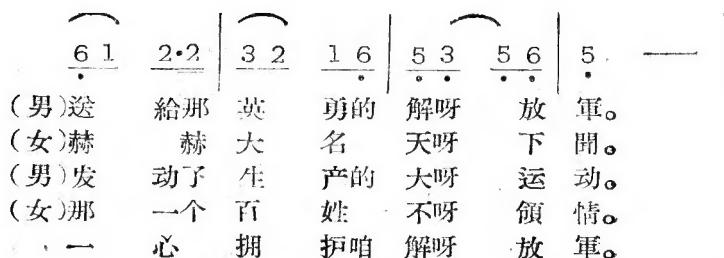 6 1 2·2 | 3 2 1 6 | 5 3 5 6 | 5 —
(男)送 給那 英 勇的 解呀 放 軍。
(女)赫 赫 大 名 天呀 下 聞。
(男)发 动了 生 产的 大呀 运 动。
(女)那 一个 百 姓 不呀 領 情。
一 心 拥 护咱 解呀 放 軍。